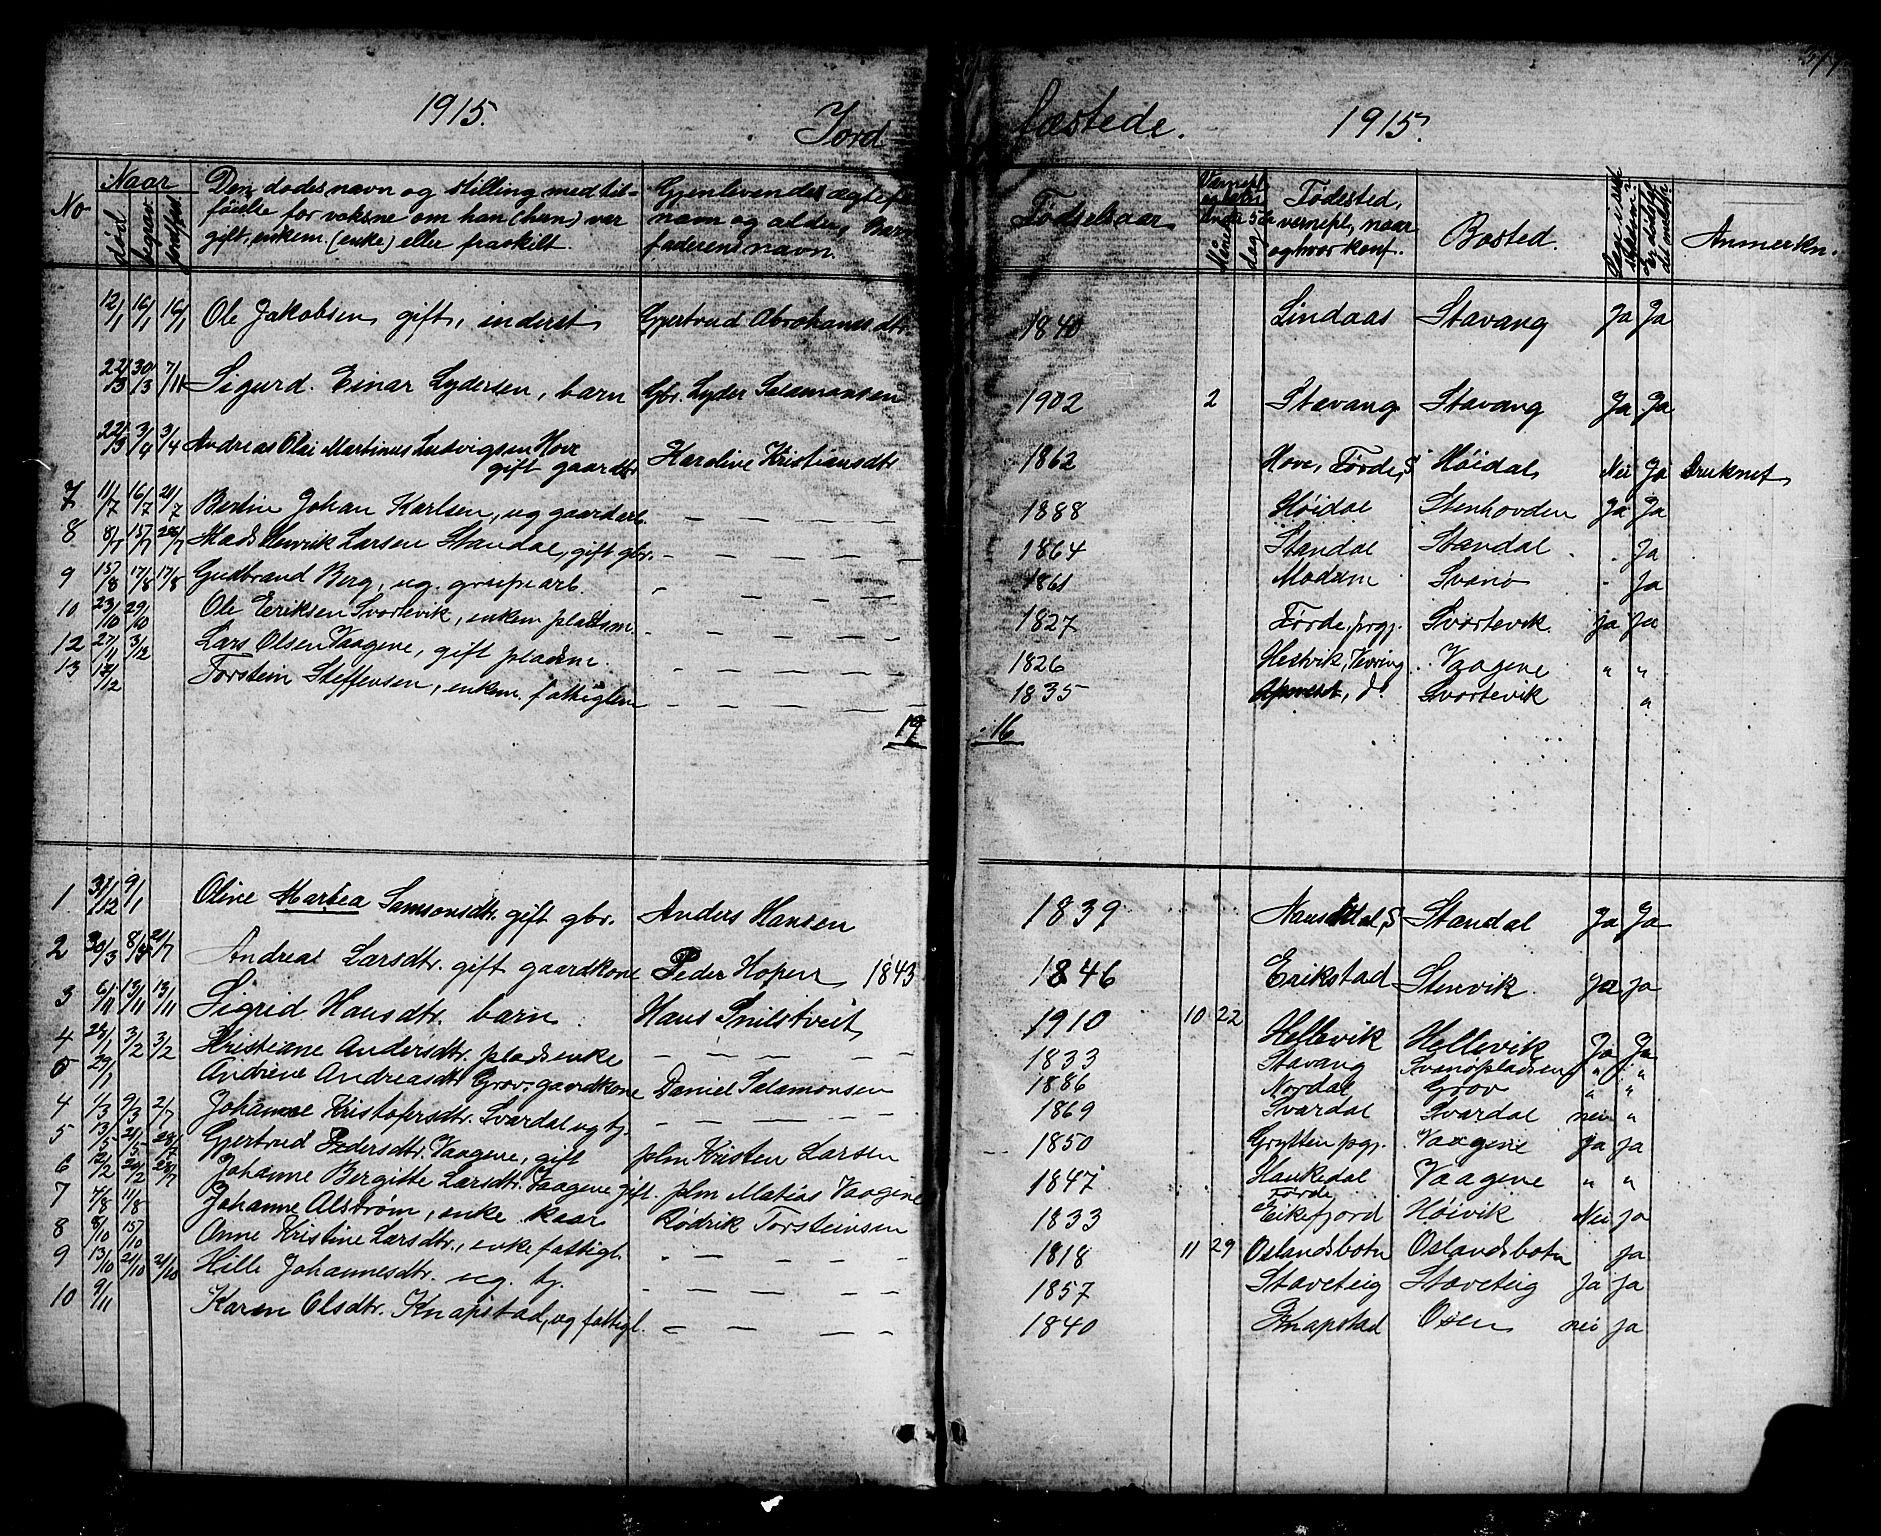 1915. Jord fæstede. 1915.
No Naar død begrav. jordfest Den dødes navn og stilling med til- Gjenlevendes ægtef. Fødselsaar Fødested, Bosted. Anmerkn.
føielse for voksne om han (hun) var navn og alder, Barn vernepl., naar
gift, enkem. (enke) eller fraskilt. faderens navn. og hvor konf.
12/1 16/1 16/1 Ole Jakobsen, gift, inderst Gjertrud Abrahamsdtr. 1840 Lindaas Stavang Ja Ja
22/3 30/3 7/11 Sigurd Einar Lydersen, barn Gbr. Lyder Salamonsen 1902 2 Stavang Stavang Ja Ja
22/3 3/4 3/4 Andreas Olai Martinus Ludvigsen Hove
gift gaardbr. Karoline Kristiansdtr 1862 Hove, Førde, S Høidal Nei Ja Druknet
7 11/7 16/7 21/7 Bertin Johan Karlsen, ug gaardarb. — — — — 1888 Høidal Stenhovden Ja Ja
8 8/7 15/7 Mads Henrik Larsen Standal, gift gbr. — — — — 1864 Standal Standal . Ja
9 15/8 17/8 17/8 Gudbrand Berg, ug. grubearb. — — — 1861 Modum Svanø - Ja
10 23/10 29/10 Ole Eriksen Svortevik, enkem pladsm. — — — — 1827 Førde, prgj. Svortevik. ja ja
12 27/11 3/12 Lars Olsen Vaagene, gift pladsm. — — — — 1826 Hestvik, Vevring Vaagene " "
13 12/12 Torstein Steffensen, enkem. fattiglem — — — — 1835 do Svortevik "
19 16
1 31/12 9/1 Olive Martea Samsonsdtr. gift gbr. Anders Hansen 1839 Naustdal, S Standal Ja Ja
2 30/3 21/7 Andrea Larsdtr. gift gaardkone Peder Hopen 1843 1846 Erikstad Stenvik. Ja Ja
3 6/11 13/11 13/11 Sigrid Hansdtr. barn Hans Snilstveit 1910 10 22 Hellevik Hellevik Ja Ja
4 3/2 3/2 Kristiane Andersdtr. pladsenke — — — — 1833 Stavang Svanøpladsen " "
5 29/1 Andrine Andreasdtr Grov, gaardkone Daniel Salamonsen 1886 Nordal Grov " "
4 1/3 9/3 21/7 Johanne Kristofersdtr. Svardal ug tj. — — — — 1869 Svardal Svardal nei "
5 13/5 21/5 Gjertrud Pedersdtr. Vaagene, gift plm Kristen Larsen 1850 Grytten pgj. Vaagene Ja ja
6 Johanne Bergitte Larsdtr. Vaagene gift. plm Matias Vaagene 1847 Haukedal Førde Vaagene " "
7 7/8 11/8 Johanne Alstrøm, enke kaar Rødrik Torsteinsen 1833 Eikefjord Høivik Nei ja
8 8/10 15/10 Anne Kristine Larsdtr., enke fattigl. — — — 1818 11 29 Oslandsbotn Oslandsbotn ja
9 13/10 21/10 21/10 Hille Johannesdtr. ug. tj. — — — — 1857 Staveteig Staveteig ja ja
10 9/11 Karen Olsdtr. Knapstad, ug fattigl. — — — — 1840 Knapstad Osen nei ja